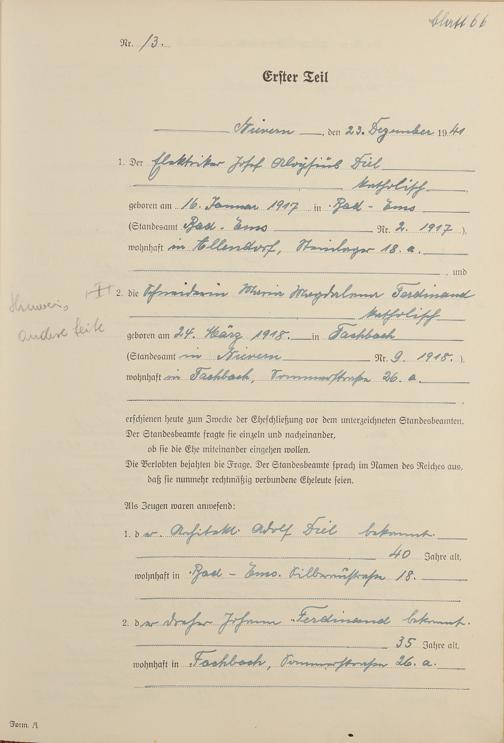 Blatt 66
Nr. 13.
Erster Teil
Nievern, den 23. Dezember 1941
1. Der Elektriker Josef Aloysius Diel
katholisch
geboren am 16. Januar 1917 in Bad-Ems
(Standesamt Bad-Ems Nr. 2. 1917).
wohnhaft in Allendorf, Steinlager 18. a.
, und
2. die Schneiderin Maria Magdalena Ferdinand
katholisch
geboren am 24. März 1918. in Fachbach
(Standesamt in Nievern Nr. 9. 1918.).
wohnhaft in Fachbach, Sommerstraße 26. a.
Hinweis
andere Seite
erschienen heute zum Zwecke der Eheschließung vor dem unterzeichneten Standesbeamten.
Der Standesbeamte fragte sie einzeln und nacheinander,
ob sie die Ehe miteinander eingehen wollen.
Die Verlobten bejahten die Frage. Der Standesbeamte sprach im Namen des Reiches aus,
daß sie nunmehr rechtmäßig verbundene Eheleute seien.
Als Zeugen waren anwesend:
1. der Architekt Adolf Diel bekannt.
40 Jahre alt,
wohnhaft in Bad-Ems. Silberaustraße 18.
2. der Dreher Johann Ferdinand bekannt.
35 Jahre alt,
wohnhaft in Fachbach, Sommerstraße 26. a.
Form. A